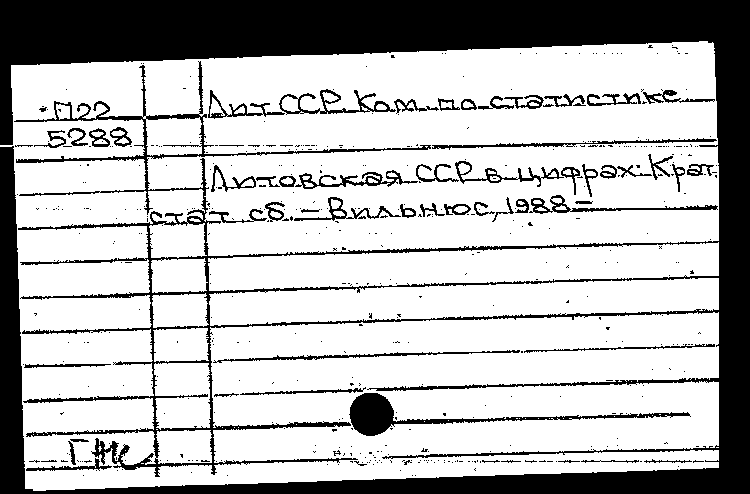 П22 Лит ССР. Ком. по статистике
5288
Литовская ССР в цифрах: Крат.
стат. сб. – Вильнюс, 1988 –
ГЖК